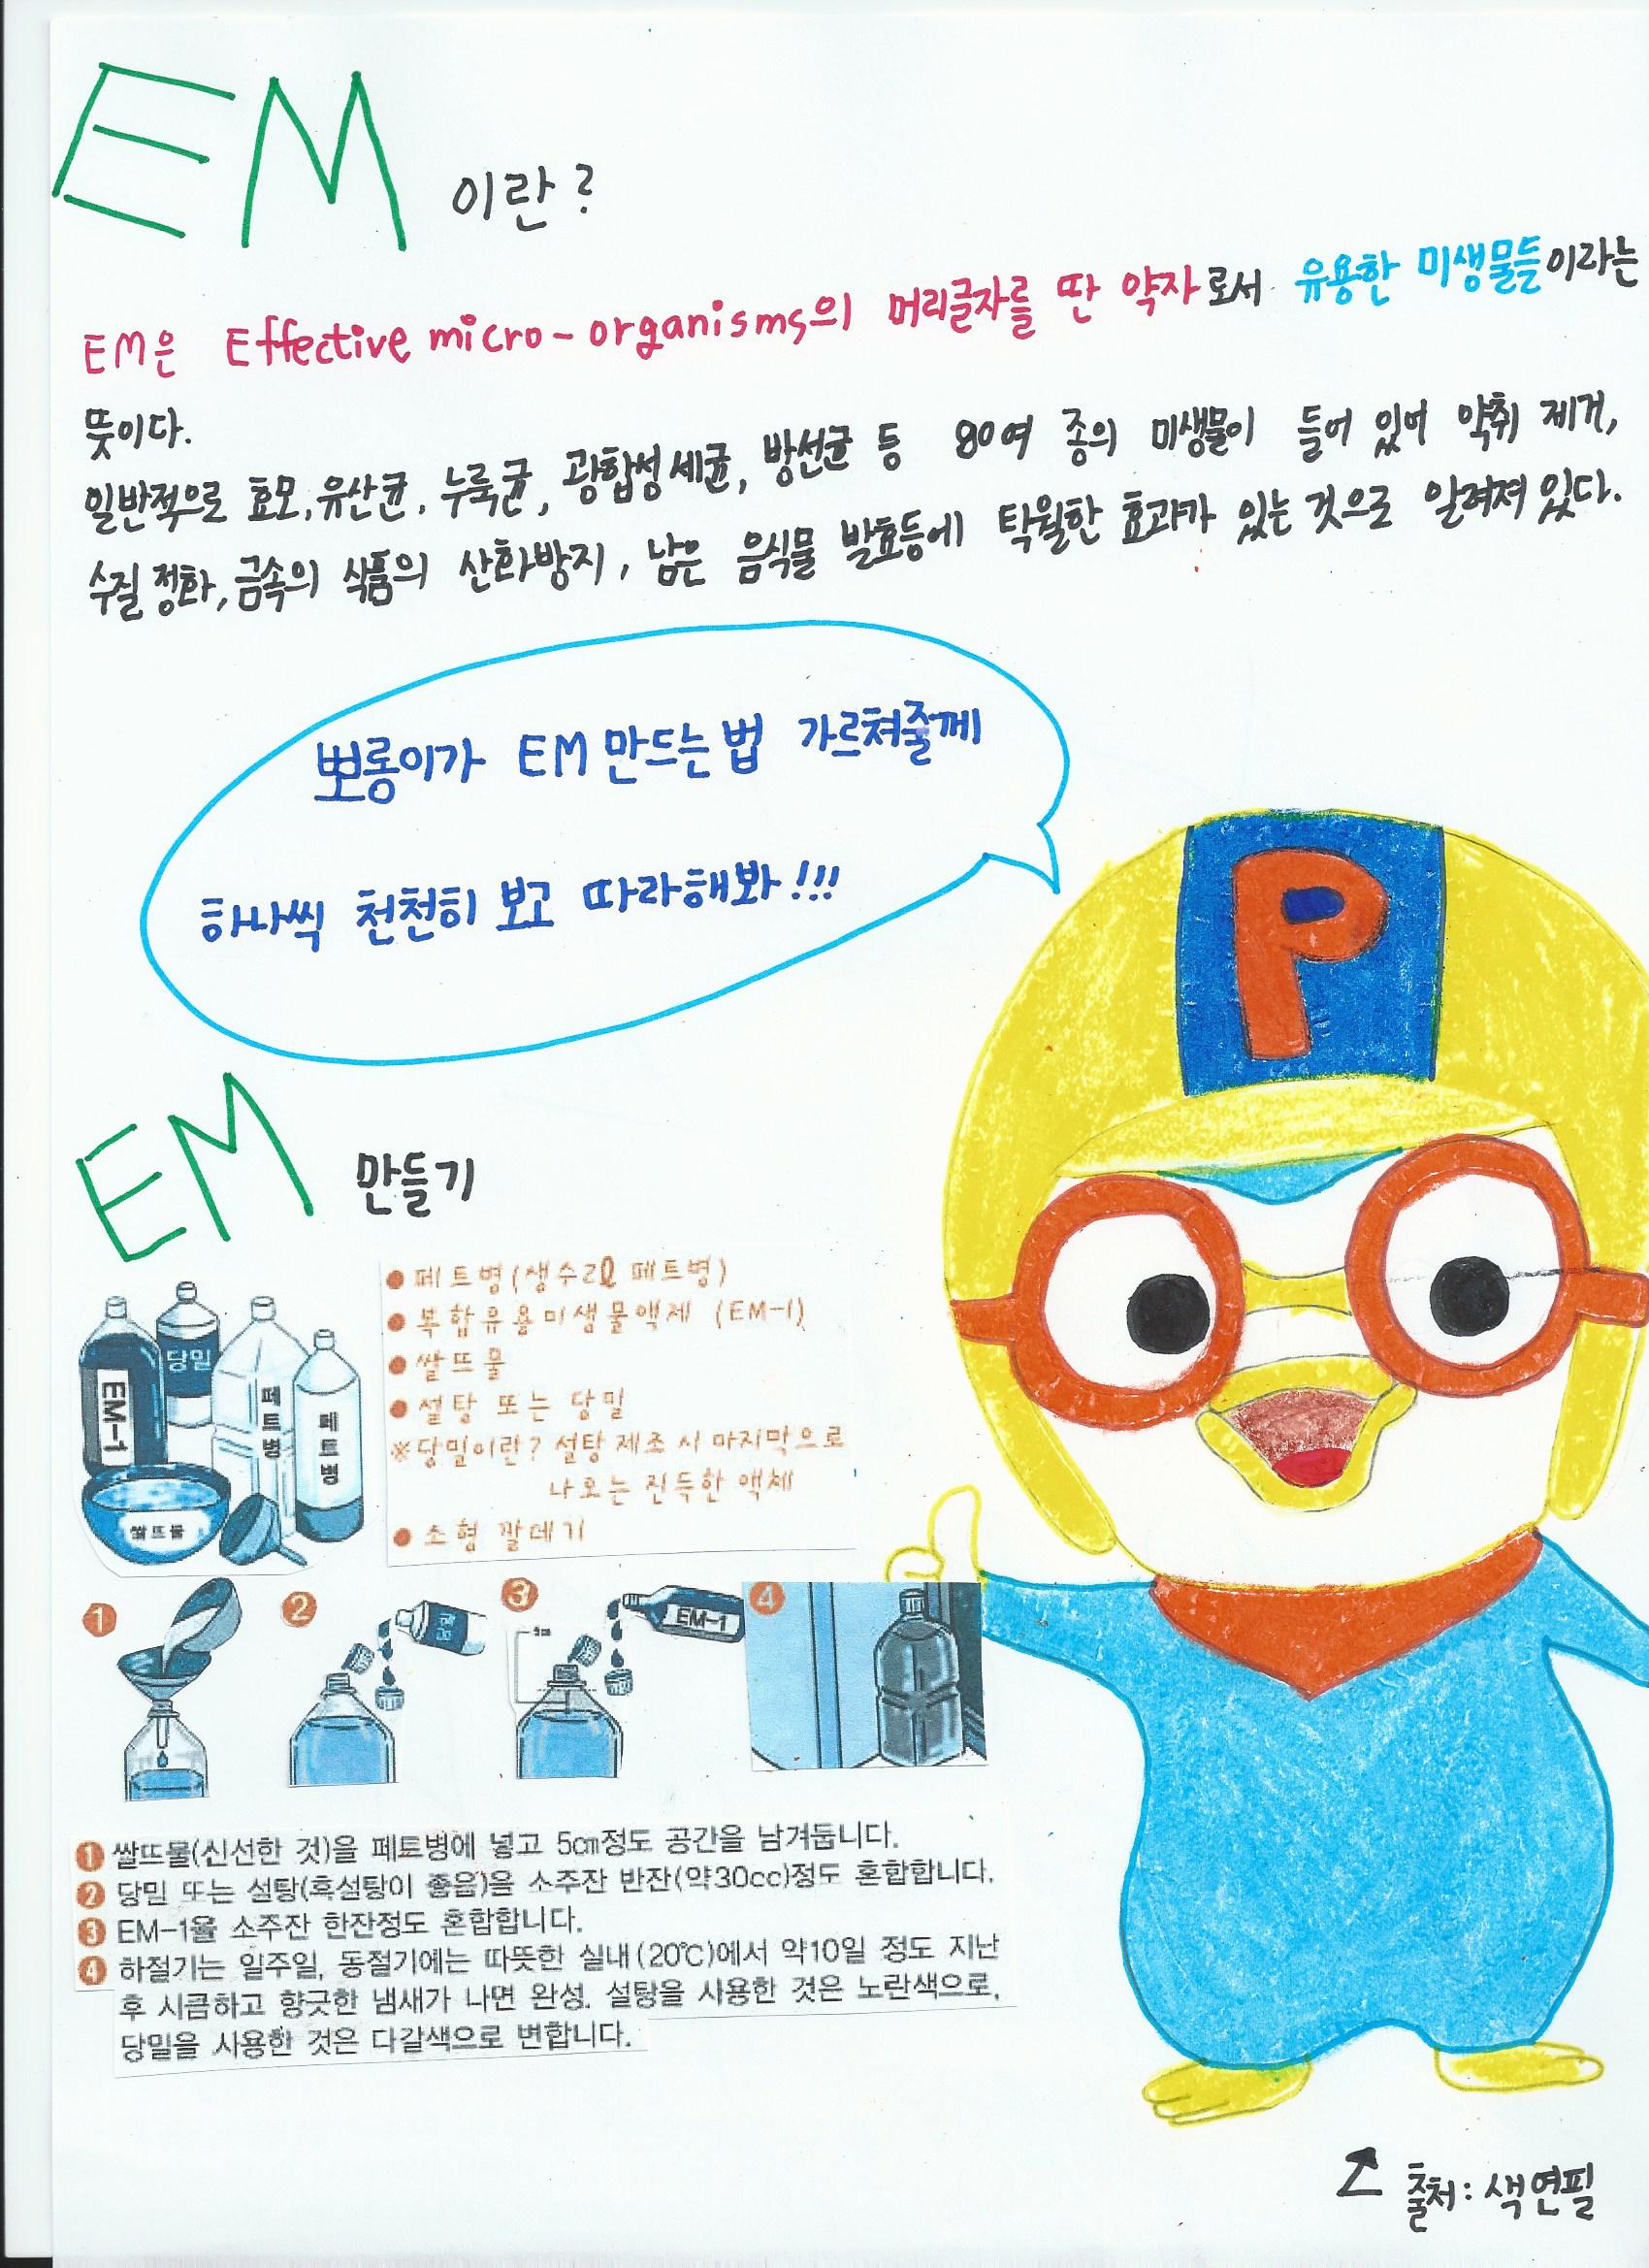 EM 이란?
EM은 Effective micro-organisms의 머리글자를 딴 약자로서 유용한 미생물들이라는
뜻이다.
일반적으로 효모, 유산균, 누룩균, 광합성 세균, 방선균 등 80여 종의 미생물이 들어 있어 악취 제거,
수질 정화, 금속의 식품의 산화방지, 남은 음식물 발효등에 탁월한 효과가 있는 것으로 알려져 있다.
뽀롱이가 EM 만드는 법 가르쳐줄께
하나씩 천천히 보고 따라해봐!!!
P
EM 만들기
EM-1
당밀
페트병
페트병
쌀뜨물
● 페트병(생수2ℓ 페트병)
● 복합유용미생물액제 (EM-1)
● 쌀뜨물
● 설탕 또는 당밀
※당밀이란? 설탕 제조 시 마지막으로
나오는 진득한 액체
● 소형 깔데기
1
2
당밀
3
5㎝
EM-1
4
1 쌀뜨물(신선한 것)을 페트병에 넣고 5㎝정도 공간을 남겨둡니다.
2 당밀 또는 설탕(흑설탕이 좋음)을 소주잔 반잔(약30cc)정도 혼합합니다.
3 EM-1을 소주잔 한잔정도 혼합합니다.
4 하절기는 일주일, 동절기에는 따뜻한 실내(20℃)에서 약10일 정도 지난
후 시큼하고 향긋한 냄새가 나면 완성. 설탕을 사용한 것은 노란색으로,
당밀을 사용한 것은 다갈색으로 변합니다.
출처: 색연필